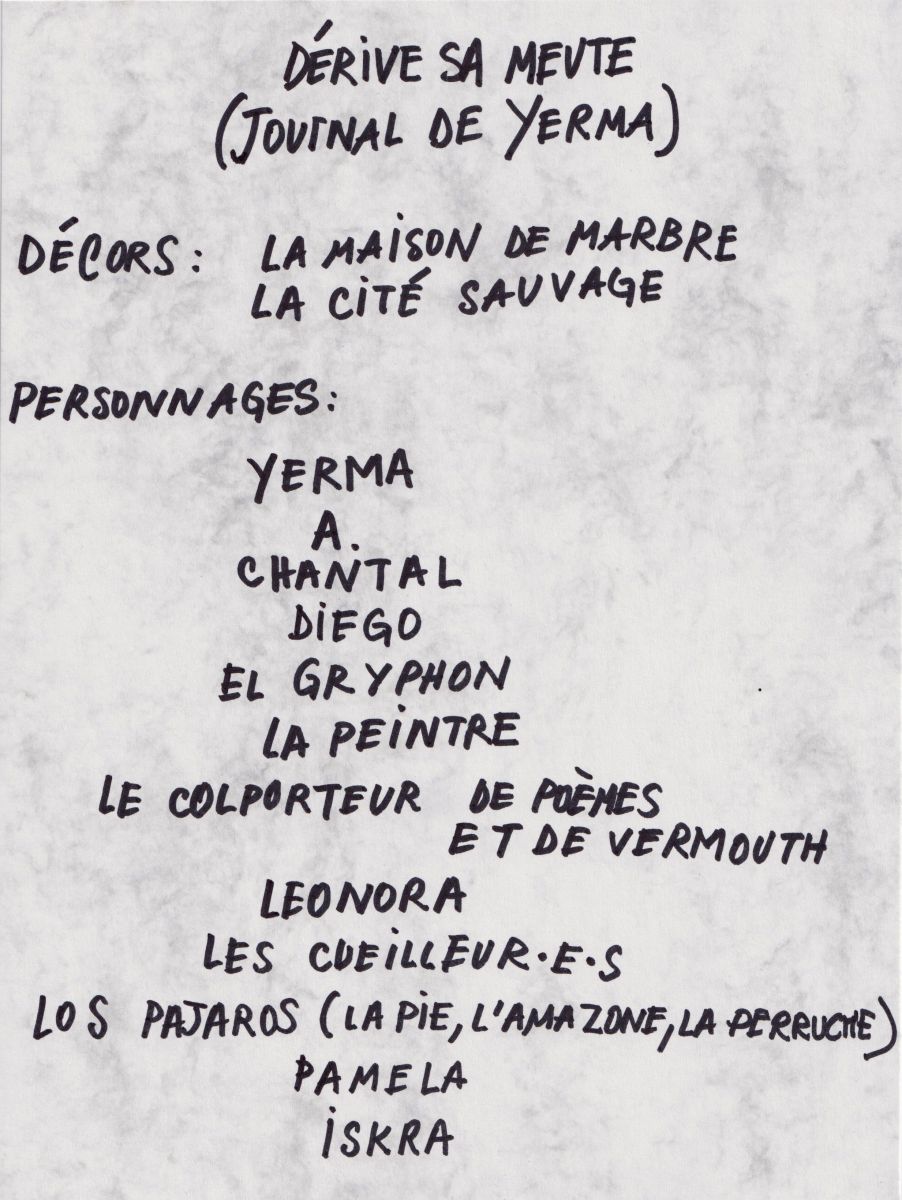 DÉRIVE SA MEUTE
(JOURNAL DE YERMA)
DÉCORS: LA MAISON DE MARBRE
LA CITÉ SAUVAGE
PERSONNAGES:
YERMA
A.
CHANTAL
DIEGO
EL GRYPHON
LA PEINTRE
LE COLPORTEUR DE POÈMES
ET DE VERMOUTH
LEONORA
LES CUEILLEUR·E·S
LOS PAJAROS (LA PIE, L'AMAZONE, LA PERRUCHE)
PAMELA
ISKRA